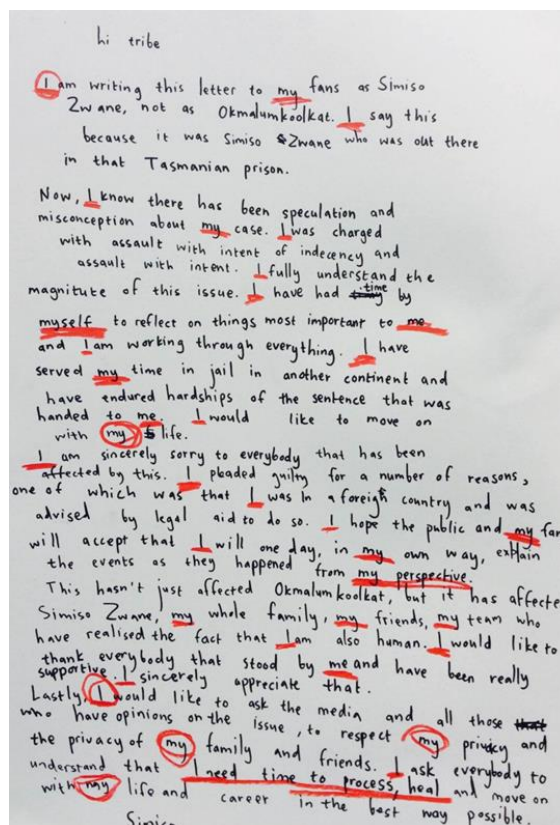 hi tribe
I am writing this letter to my fans as Simiso
Zwane, not as Okmalumkoolkat. I say this
because it was Simiso Zwane who was out there
in that Tasmanian prison.
Now, I know there has been speculation and
misconception about my case. I was charged
with assault with intent of indecency and
assault with intent. I fully understand the
magnitute of this issue. I have had time by
myself to reflect on things most important to me
and I am working through everything. I have
served my time in jail in another continent and
have endured hardships of the sentence that was
handed to me. I would like to move on
with my life.
I am sincerely sorry to everybody that has been
affected by this. I pleaded guilty for a number of reasons,
one of which was that I was in a foreign country and was
advised by legal aid to do so. I hope the public and my fan
will accept that I will one day, in my own way, explain
the events as they happened from my perspective.
This hasn't just affected Okmalumkoolkat, but it has affecte
Simiso Zwane, my whole family, my friends, my team who
have realised the fact that I am also human. I would like to
thank everybody that stood by me and have been really
supportive. I sincerely appreciate that.
Lastly, I would like to ask the media and all those
who have opinions on the issue, to respect my privacy and
the privacy of my family and friends. I ask everybody to
understand that I need time to process, heal and move on
with my life and career in the best way possible.
Simiso